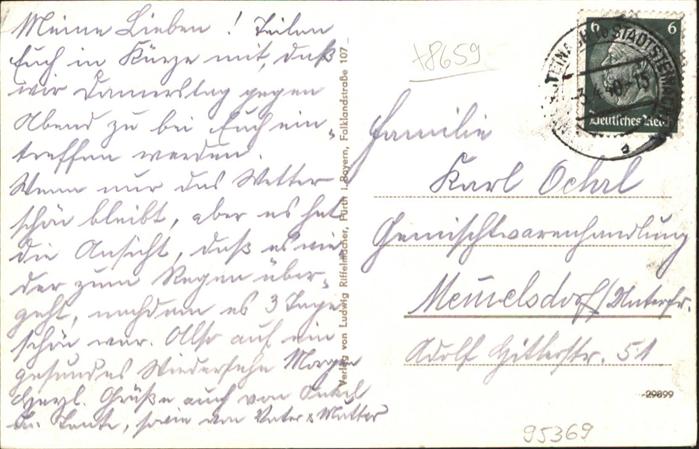 Meine Lieben! Teilen
Euch in Kürze mit, daß
wir Donnerstag gegen
Abend zu bei Euch ein-
treffen werden.
Wenn nur das Wetter
schön bleibt, aber es hat
die Ansicht, daß es wie-
der zum Regen über-
geht, nachdem es 3 Tage
schön war. Also auf ein
gesundes Wiedersehn Morgen
Herzl. Grüße auch von Onkel
u. Tante, sowie von Vater & Mutter
Verlag von Ludwig Riffelmacher, Fürth i. Bayern, Falklandstraße 107
78659
6 6
Deutsches Reich
STADTSTEINACH
Familie
Karl Oehrl
Gemischtwarenhandlung
Memmelsdorf/Unterfr.
Adolf Hitlerstr. 51
29899
95369